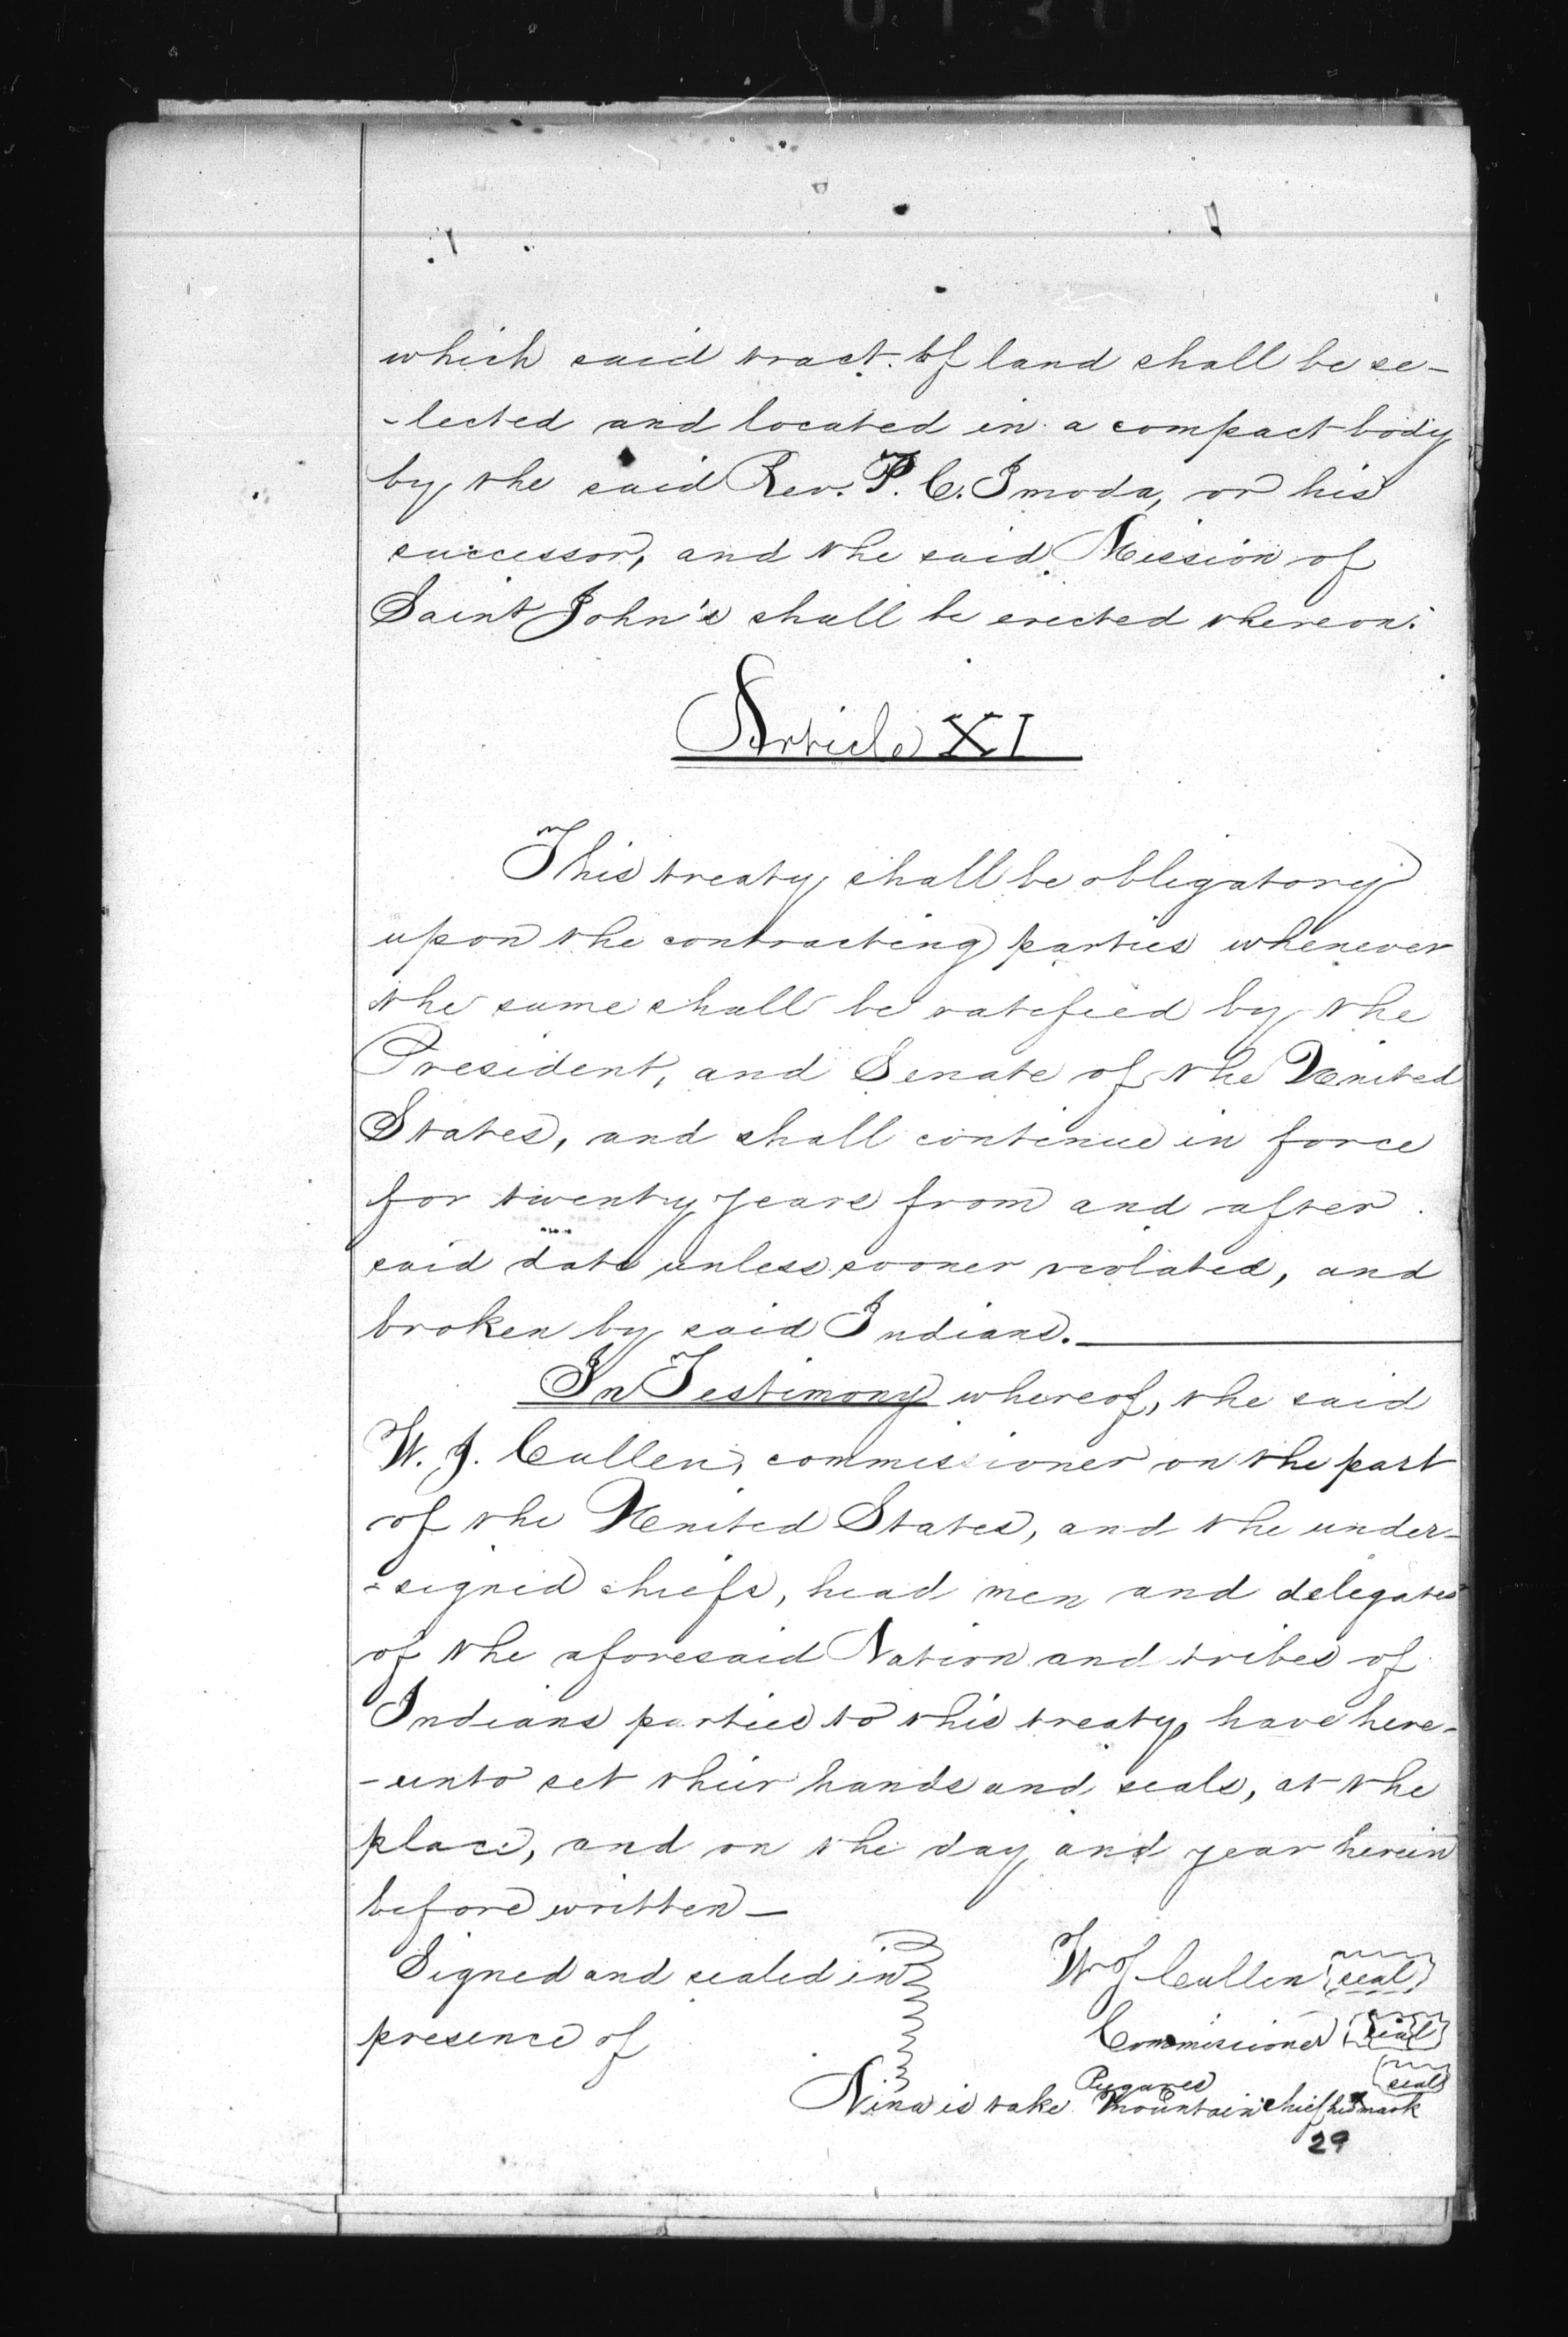 which said tract of land shall be se-
-lected and located in a compact body
by the said Rev. P. C. Imoda, or his
successor, and the said Mission of
Saint John's shall be erected thereon.
Article XI
This treaty shall be obligatory
upon the contracting parties whenever
the same shall be ratified by the
President, and Senate of the United
States, and shall continue in force
for twenty years from and after
said date unless sooner violated, and
broken by said Indians.
In Testimony whereof, the said
W. J. Cullen, commissioner on the part
of the United States, and the under-
-signed chiefs, head men and delegates
of the aforesaid Nation and tribes of
Indians parties to this treaty have here-
-unto set their hands and seals, at the
place, and on the day and year herein
before written—
Signed and sealed in
presence of
W J Cullen seal
Commissioner seal
Nina is take Mountain chief his x mark seal
29